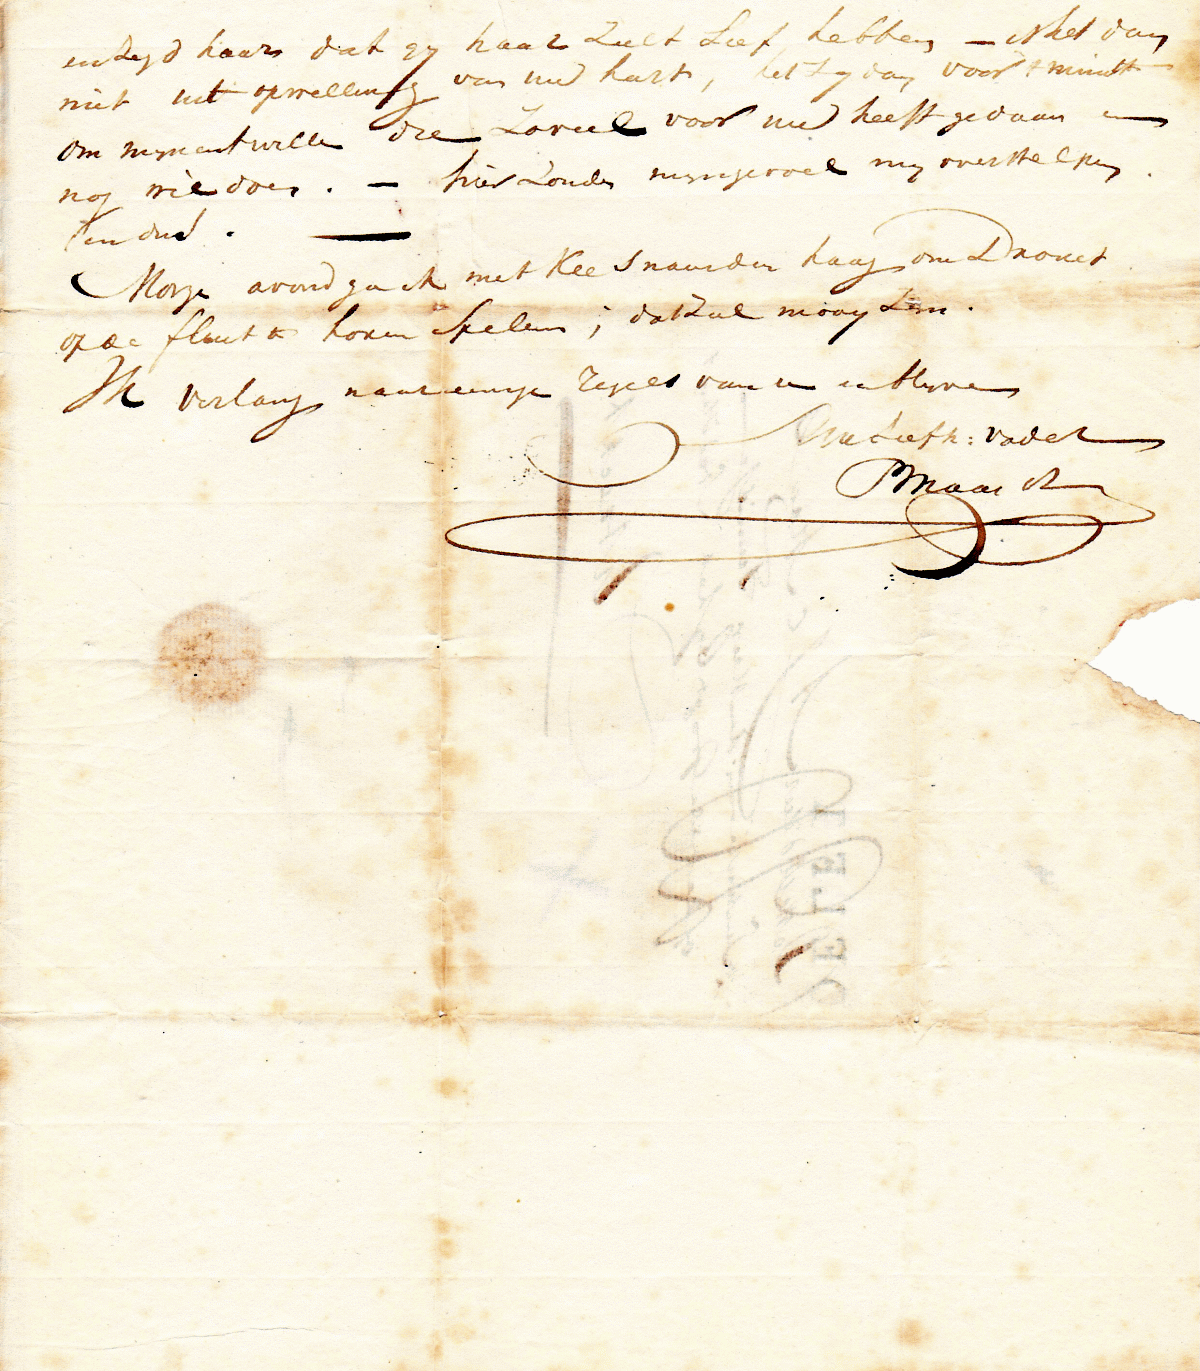 en zegd haar dat gy haar zult Lief hebben — is het dan
niet uit opwelling van uw hart, het zy dan voor 't minst
om mynent wille die zoveel voor uw heeft gedaan en
nog wil doen. — hier zoude myn gevoel my overstelpen.
Morge avond ga ik met Kee Snaar den haag om Drouet
op de fluit te horen Spelen; dat zal mooy zyn.
Ik verlang naar eenige regels van u en blyve
Uw Liefh: vader